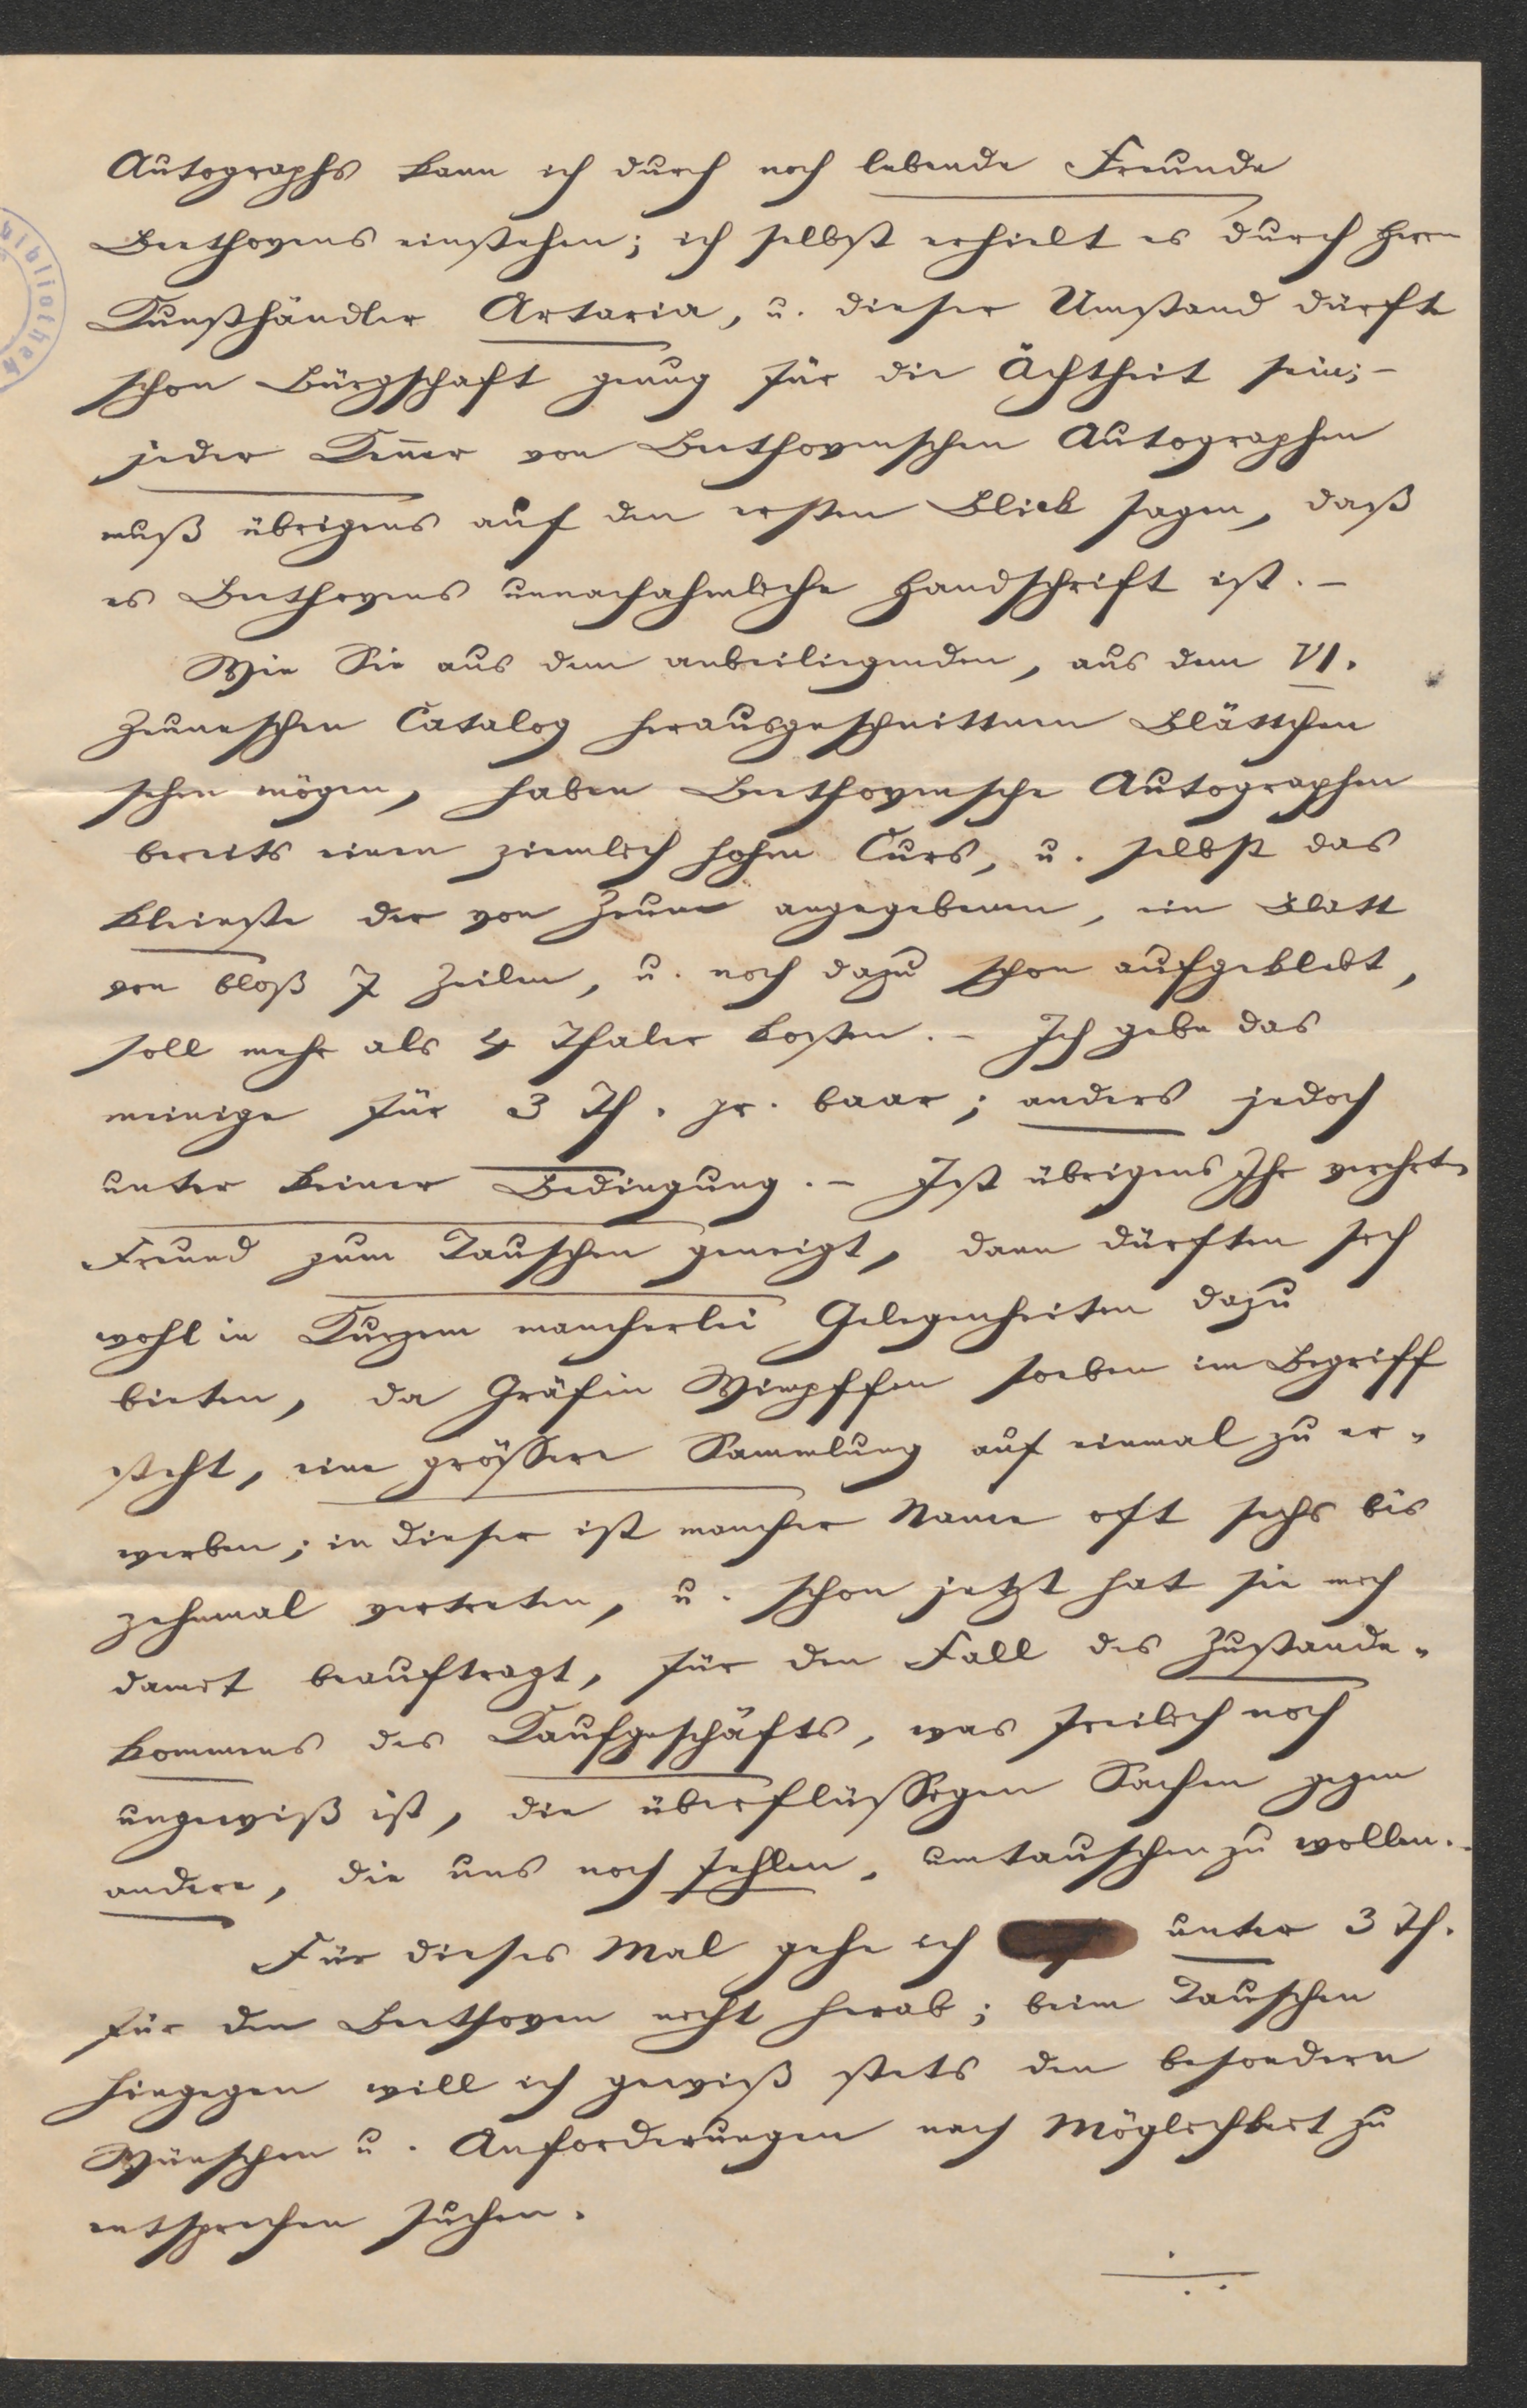 Autographs kann ich durch noch lebende Freunde
Beethovens einstehen; ich selbst erhielt es durch Herrn
Kunsthändler Artaria, u. dieser Umstand dürfte
schon Bürgschaft genug für die Ächtheit sein; –
jeder Keñer von Beethovenschen Autographen
muß übrigens auf den ersten Blick sagen, daß
es Beethovens unnachahmliche Handschrift ist. –
Wie Sie aus dem anbeiliegenden, aus dem VI.
Zeuneschen Catalog herausgeschnittenen Blättchen
sehen mögen, haben Beethovensche Autographen
bereits einen ziemlich hohen Curs, u. selbst das
kleinste der von Zeune angegebenen, ein Blatt
von bloß 7 Zeilen, u. noch dazu schon aufgeklebt,
soll mehr als 4 Thaler kosten. – Ich gebe das
meinige für 3 Th. pr. baar; anders jedoch
unter keiner Bedingung. – Ist übrigens Ihr verehrter
Freund zum Tauschen geneigt, dann dürften sich
wohl in Kurzem mancherlei Gelegenheiten dazu
bieten, da Gräfin Wimpffen soeben im Begriff
steht, eine grössere Sammlung auf einmal zu er-
werben; in dieser ist mancher Name oft sechs bis
zehnmal vertreten, u. schon jetzt hat sie mich
damit beauftragt, für den Fall des Zustande-
kommens des Kaufgeschäfts, was freilich noch
ungewiß ist, die überflüssigen Sachen gegen
andere, die uns noch fehlen, umtauschen zu wollen. –
Für dieses Mal gehe ich unter 3 Th.
für den Beethoven nicht herab; beim Tauschen
hingegen will ich gewiß stets den besondern
Wünschen u. Anforderungen nach Möglichkeit zu
entsprechen suchen.
bibliothek